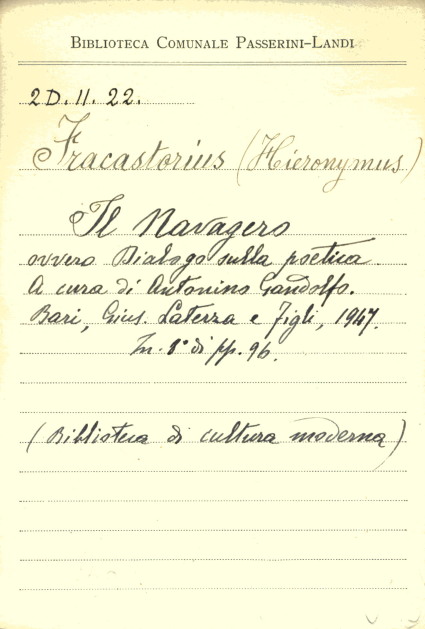 BIBLIOTECA COMUNALE PASSERINI-LANDI
2D.II.22.
Fracastorius (Hieronymus)
Il Navagero
ovvero Dialogo sulla poetica.
A cura di Antonino Gandolfo.
Bari, Gius. Laterza e Figli, 1947.
In-8° di pp. 96.
(Biblioteca di cultura moderna)